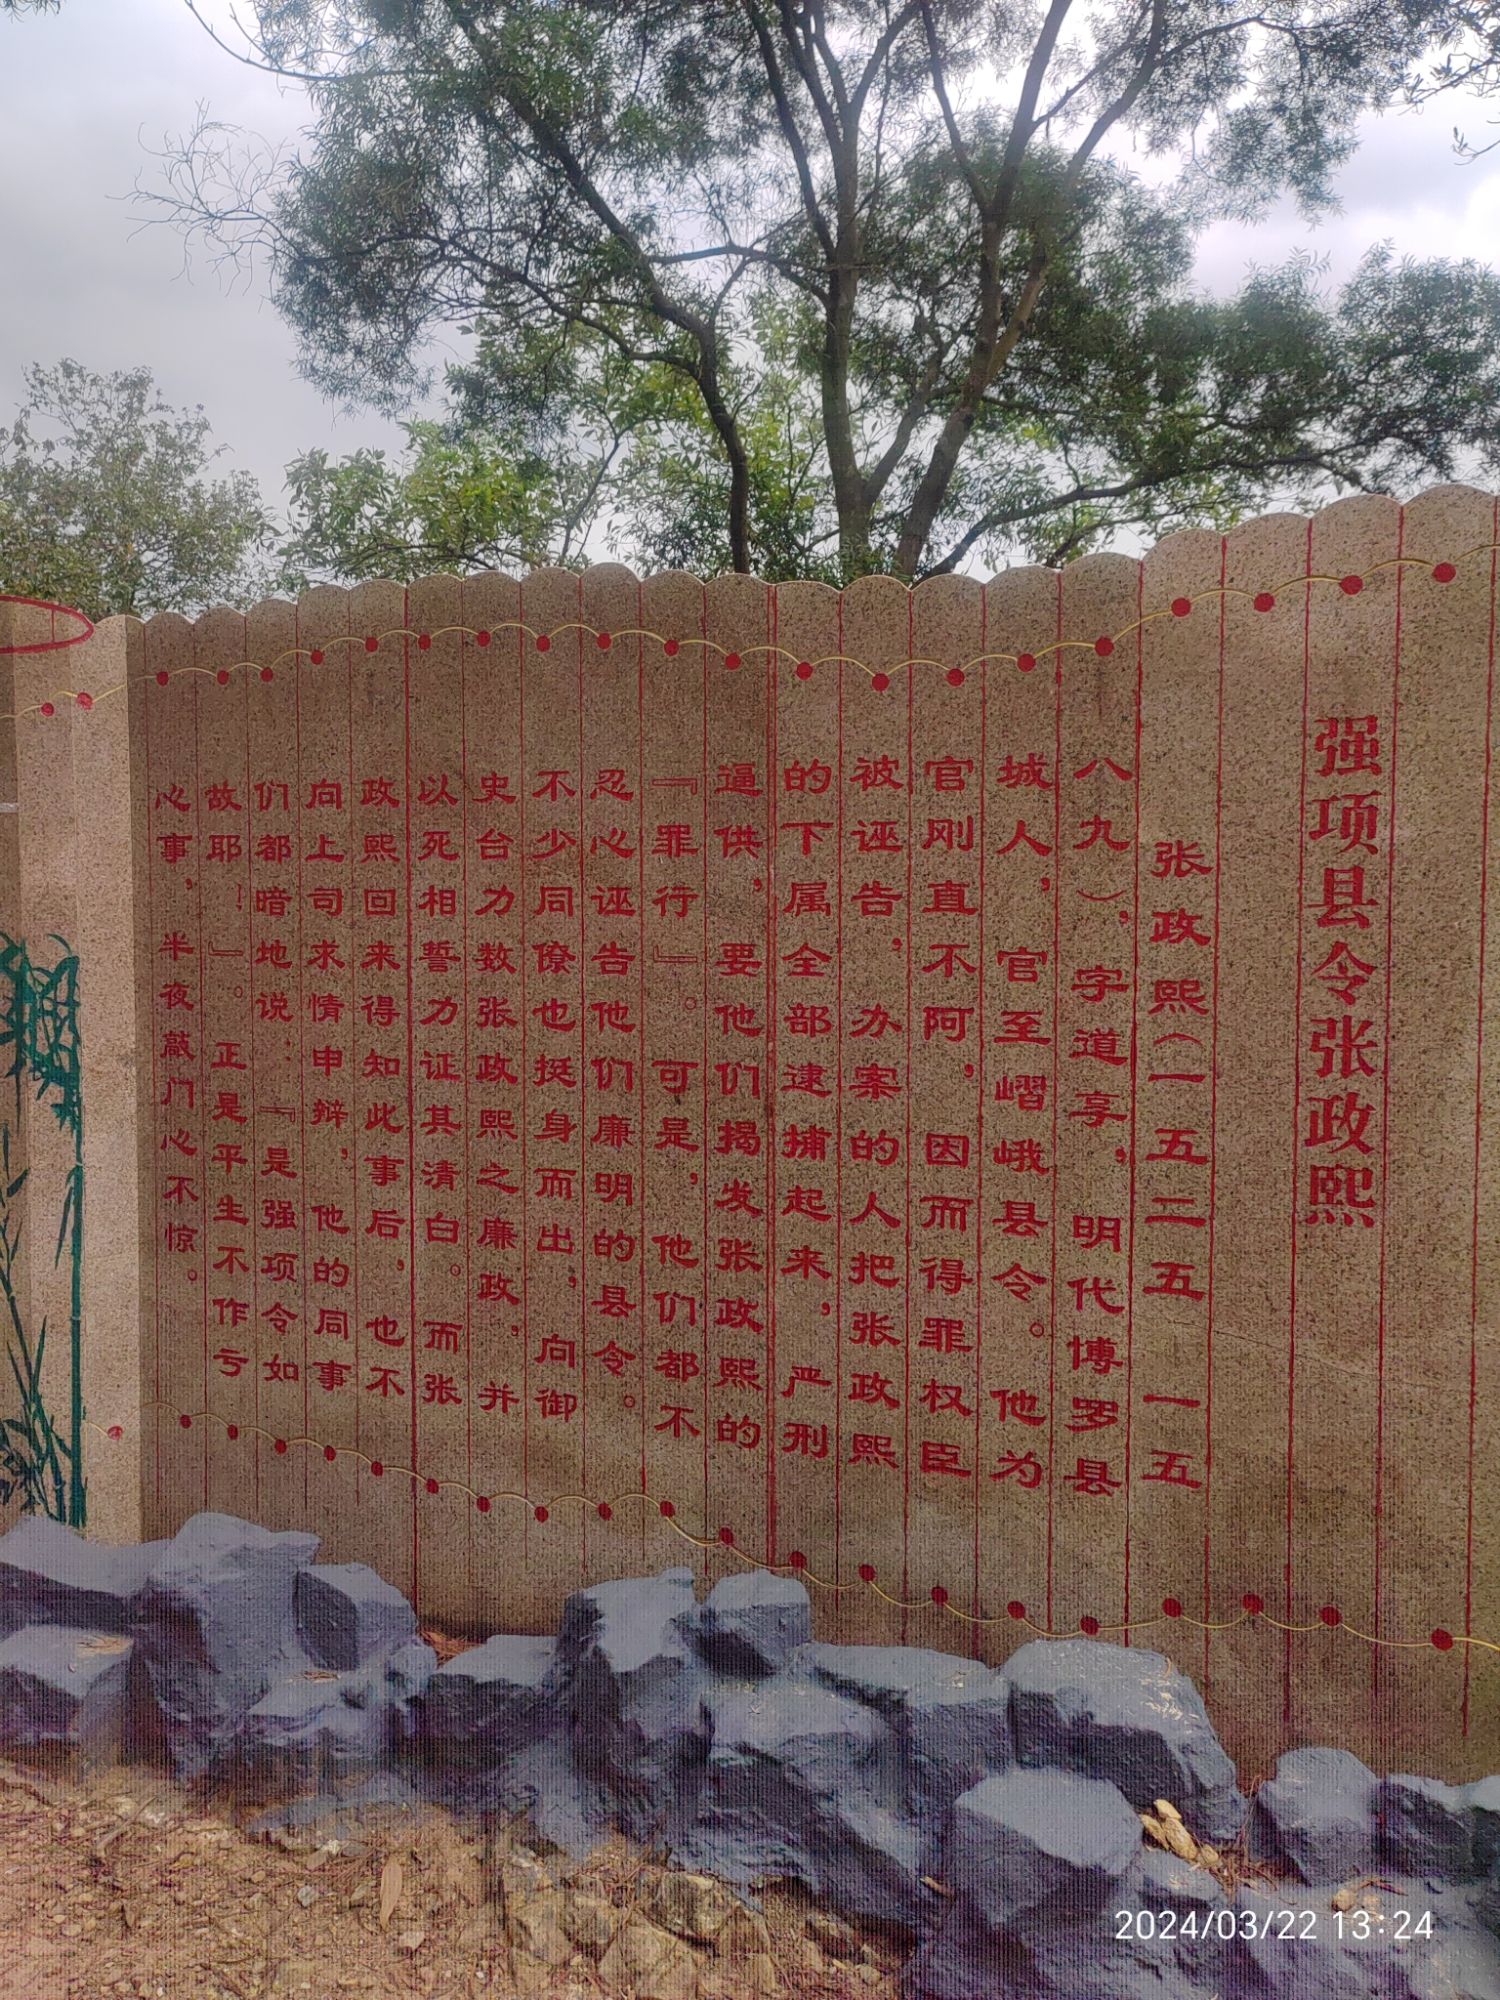 强项县令张政熙
张政熙（一五二五—一五
八九），字道享，明代博罗县
城人，官至嶍峨县令。他为
官刚直不阿，因而得罪权臣
被诬告，办案的人把张政熙
的下属全部逮捕起来，严刑
逼供，要他们揭发张政熙的
『罪行』。可是，他们都不
忍心诬告他们廉明的县令。
不少同僚也挺身而出，向御
史台力数张政熙之廉政，并
以死相誓力证其清白。而张
政熙回来得知此事后，也不
向上司求情申辩，他的同事
们都暗地说：『是强项令如
故耶！』。正是平生不作亏
心事，半夜敲门心不惊。
2024/03/22 13:24